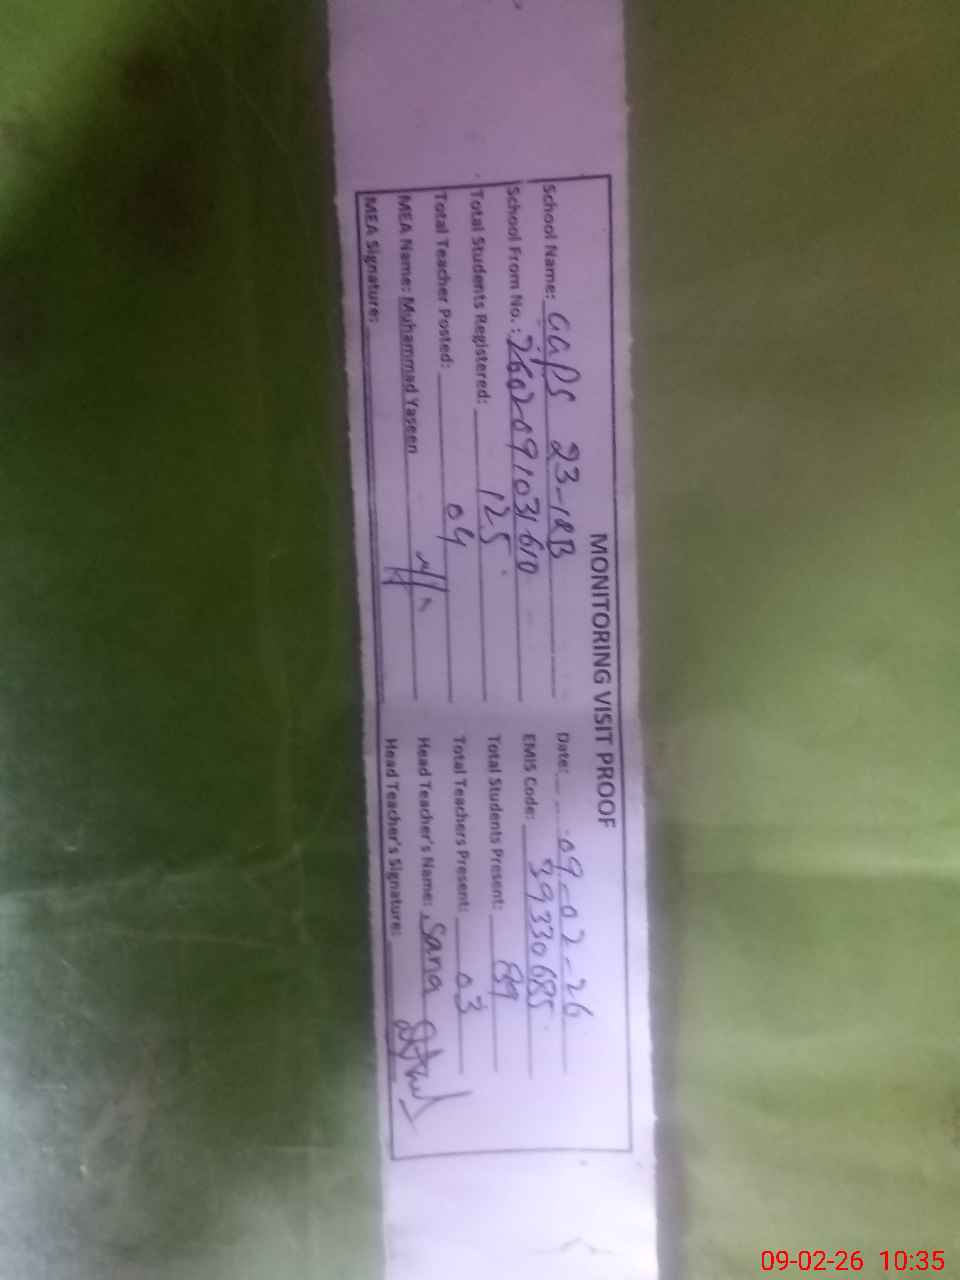 MONITORING VISIT PROOF
School Name: GGPS 23-18B Date: 09-02-26
School From No. : 2602091031610 EMIS Code: 39330685
Total Students Registered: 125 Total Students Present: 89
Total Teacher Posted: 04 Total Teachers Present: 03
MEA Name: Muhammad Yaseen Head Teacher's Name: Sana
MEA Signature: Head Teacher's Signature:
09-02-26 10:35